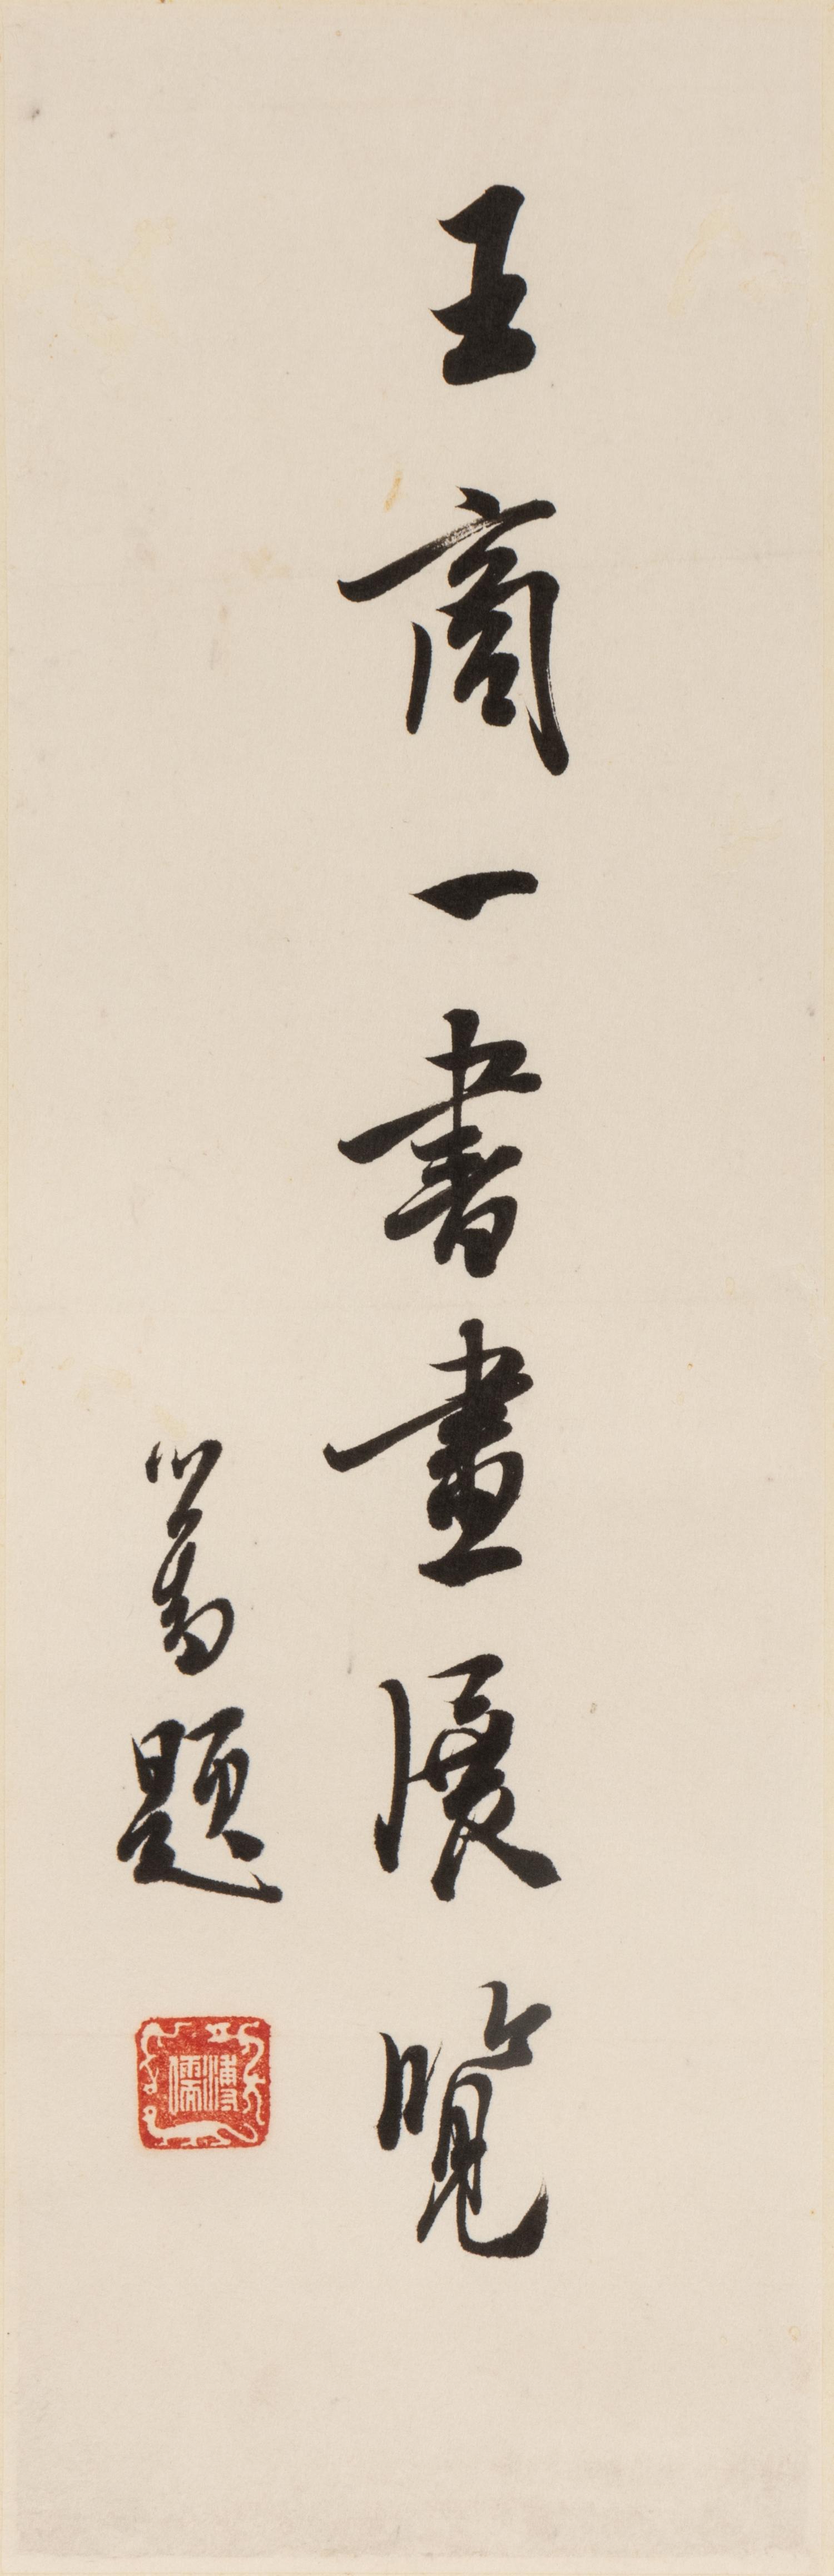 王商一書畫展覽
心畬題
溥儒